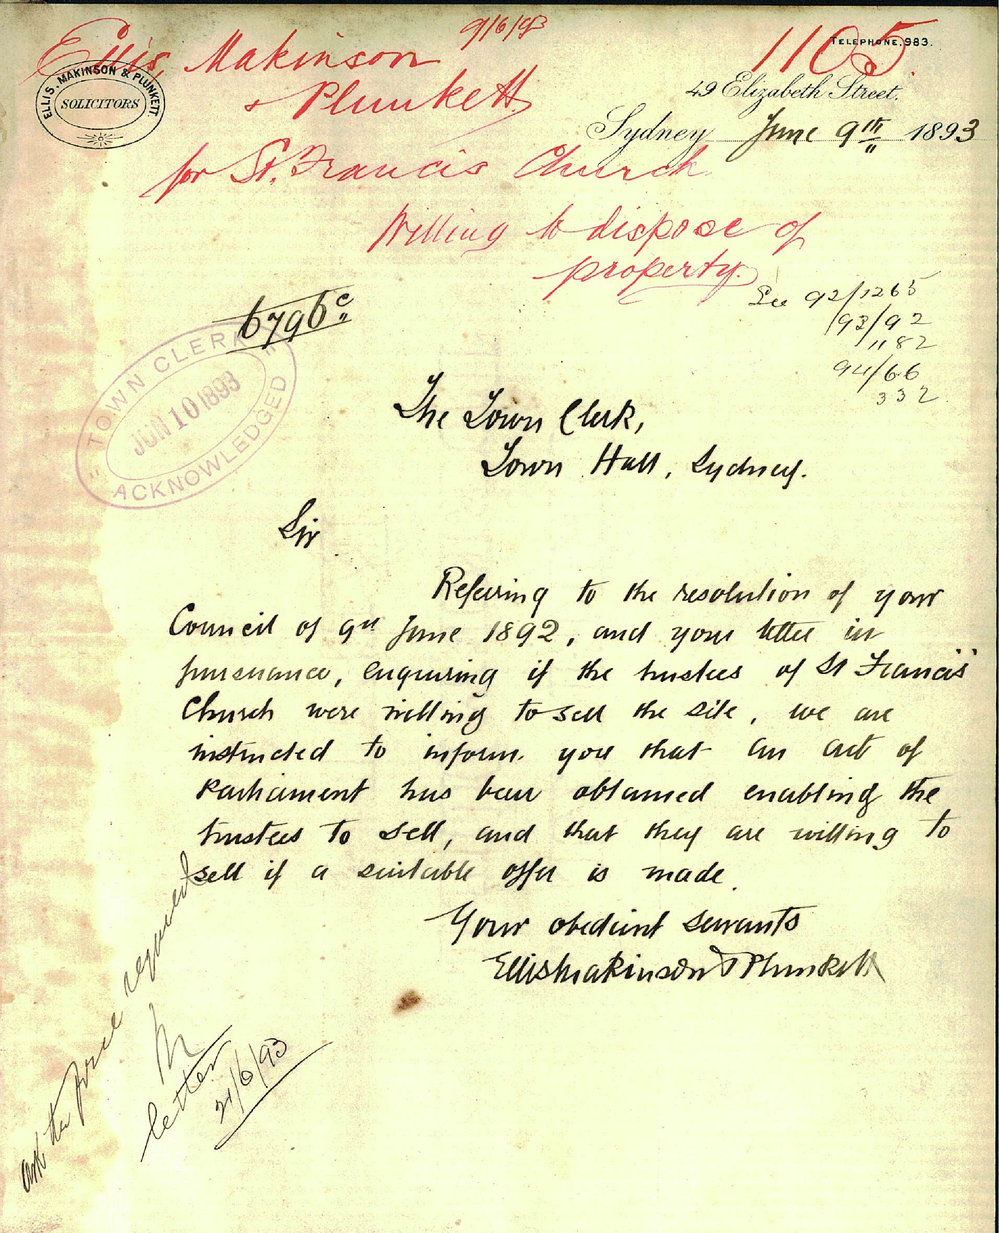 9/6/93
1105
TELEPHONE. 983.
Ellis, Makinson
& Plunkett
ELLIS, MAKINSON & PLUNKETT
SOLICITORS
49 Elizabeth Street.
Sydney June 9th 1893
for St. Francis Church
Willing to dispose of
property.
See 92/1265
93/92
1182
94/66
332
6796c
TOWN CLERK
JUN 10 1893
ACKNOWLEDGED
The Town Clerk,
Town Hall, Sydney.
Sir
Referring to the resolution of your
Council of 9th June 1892, and your letter in
pursuance, enquiring if the trustees of St Francis'
Church were willing to sell the site, we are
instructed to inform you that an act of
Parliament has been obtained enabling the
trustees to sell, and that they are willing to
sell if a suitable offer is made.
Your obedient servants
Ellis Makinson & Plunkett
ask the price required
letter
21/6/93